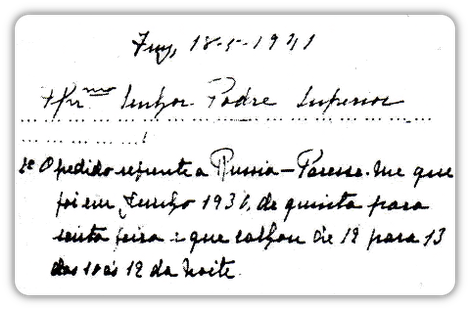 Tuy, 18-5-1941
Hr.mo Senhor Padre Superior
.................................................
...............!
1º O pedido referente a Russia – Parece-me que
foi em Junho 1931, de quinta para
sexta feira e que calhou de 12 para 13
das 10 ás 12 da Noite.